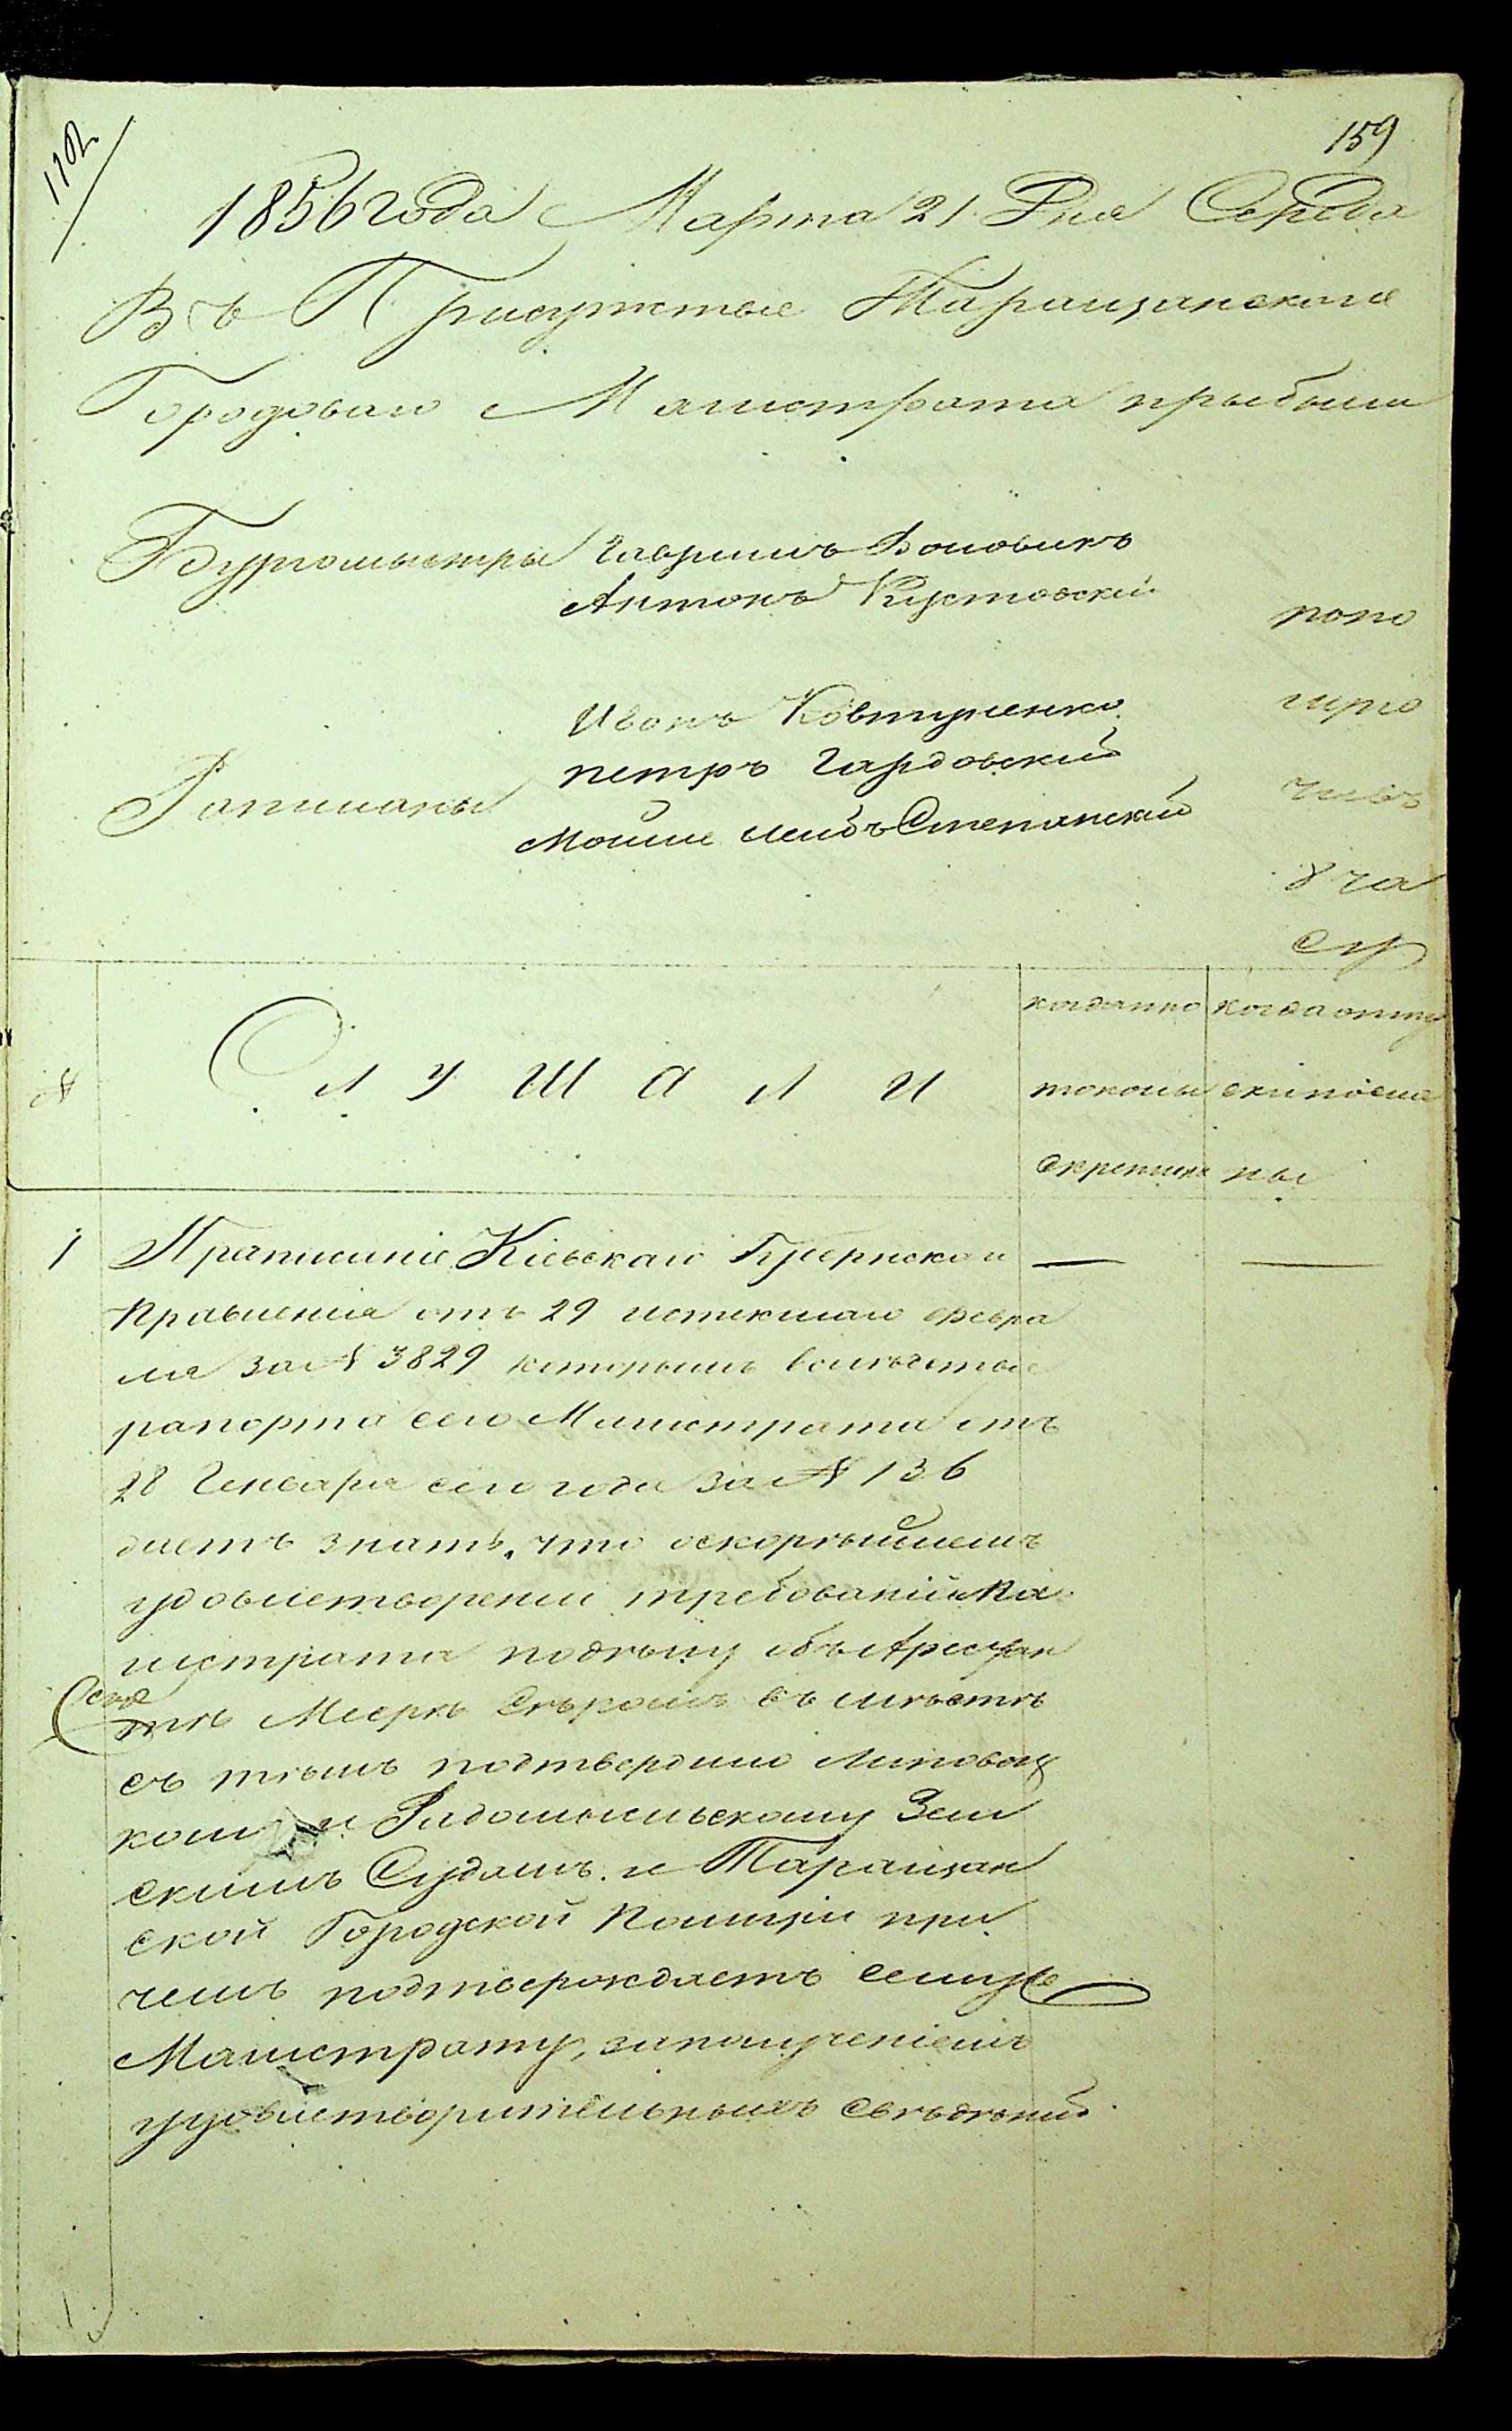 159
1102
1856 года Марта 21 Дня Середа
Въ Присуцтвые Таращанского
Городоваго Магистрата прыбыли
Бургомыстры Гавриилъ Воловикъ
Антонъ Кустовский
попо
Иванъ Ковтуненко
луно
Ратманы
петръ Гардовский
Мошие Лейбъ Степанский
8 ча
су
№
Слушали
когда про
токолы
скреплены
когда отпу
1 Прапысаніе Кіевскаго Губернскаго
Правления отъ 29 истекшаго февра
ля за № 3829 которымъ
рапорта сего Магистрата отъ
28 Генваря сего года за № 136
даетъ знать, что оскорѣйшемъ
удовлетворении требованій Ма
гистрата подѣлу объ Арестан
тѣ Меерѣ съ мѣстѣ
съ тѣмъ подтвердило Липовец
кому и Радомысльскому Зем
скимъ Судамъ и Таращан
ской Городской Полиции при
чемъ подтверождаетъ сему
Магистрату, заполученіемъ
удовлетворительныхъ свѣдѣний